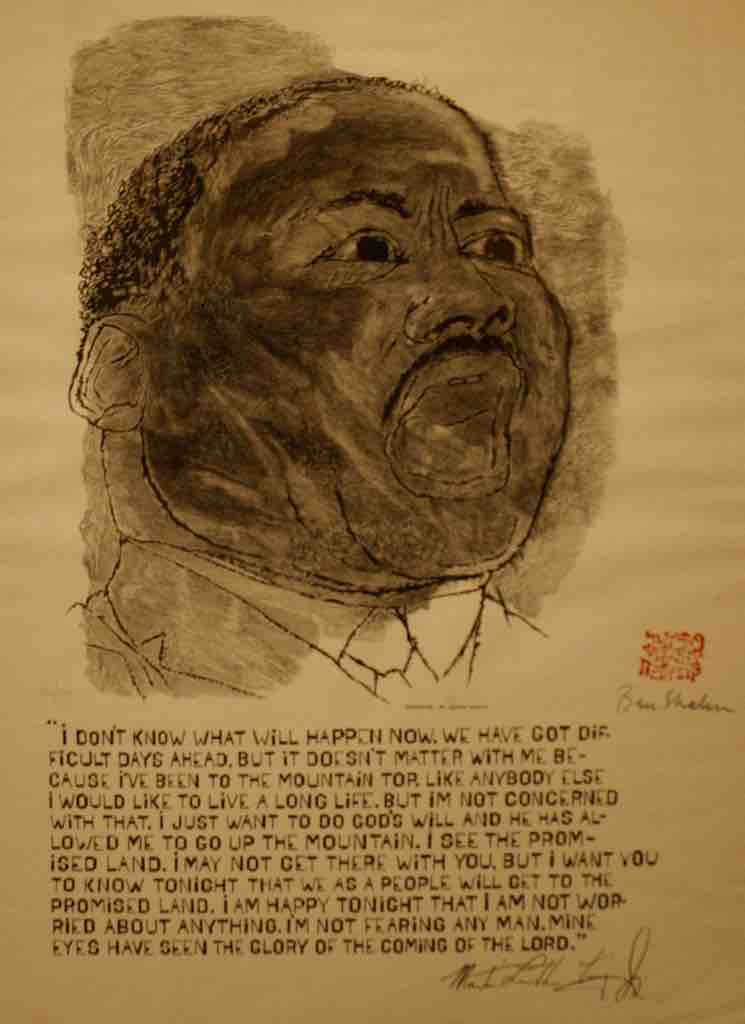 Ben Shahn
"I DON'T KNOW WHAT WILL HAPPEN NOW. WE HAVE GOT DIF-
FICULT DAYS AHEAD, BUT IT DOESN'T MATTER WITH ME BE-
CAUSE I'VE BEEN TO THE MOUNTAIN TOP. LIKE ANYBODY ELSE
I WOULD LIKE TO LIVE A LONG LIFE. BUT IM NOT CONCERNED
WITH THAT. I JUST WANT TO DO GOD'S WILL AND HE HAS AL-
LOWED ME TO GO UP THE MOUNTAIN. I SEE THE PROM-
ISED LAND. I MAY NOT GET THERE WITH YOU, BUT I WANT YOU
TO KNOW TONIGHT THAT WE AS A PEOPLE WILL GET TO THE
PROMISED LAND. I AM HAPPY TONIGHT THAT I AM NOT WOR-
RIED ABOUT ANYTHING. I'M NOT FEARING ANY MAN. MINE
EYES HAVE SEEN THE GLORY OF THE COMING OF THE LORD."
Martin Luther King Jr